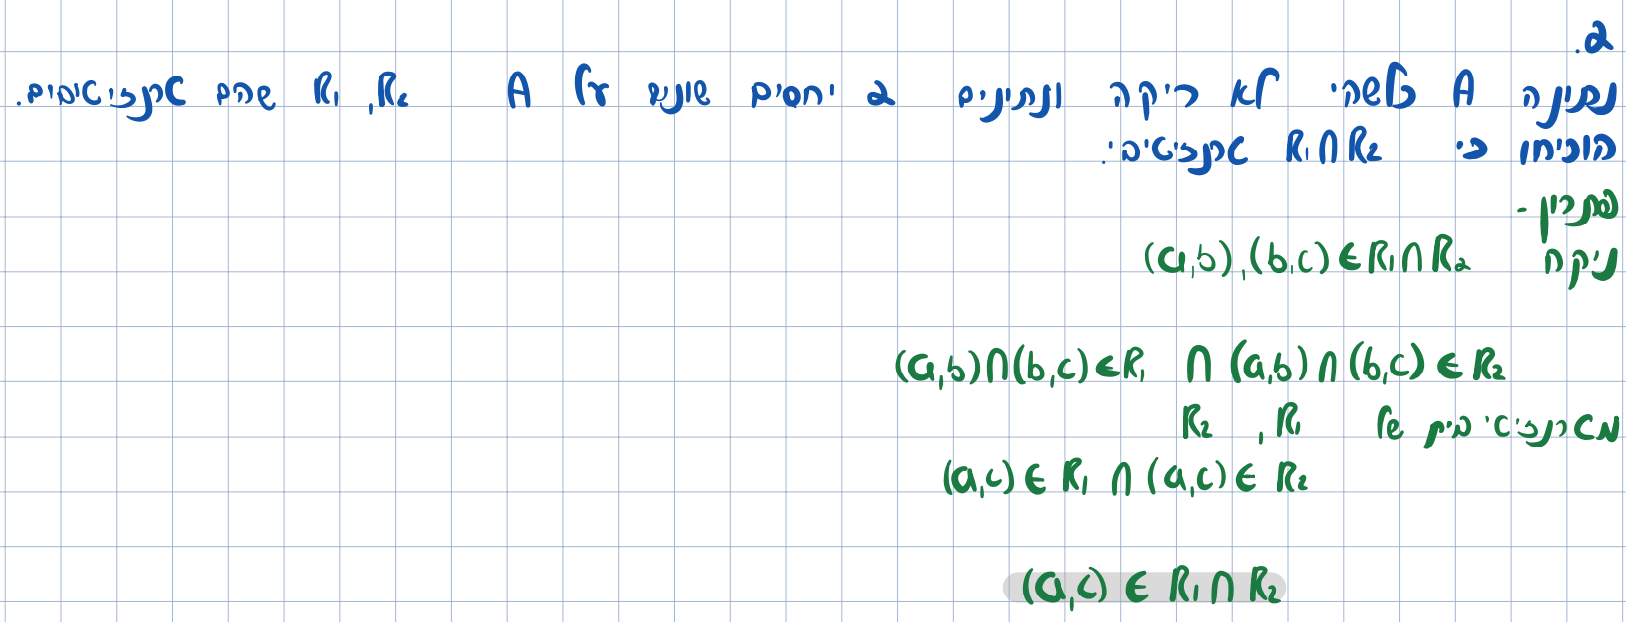 2.
נתונה A כלשהי לא ריקה ונתינים 2 יחסים שונים על A R₁, R₂ שהם טרנזיטיבים.
הוכיחו כי R₁∩R₂ טרנזיטיבי.
פתרון -
ניקח (a,b),(b,c)∈R₁∩R₂
(a,b)∩(b,c)∈R₁ ∩ (a,b)∩(b,c)∈R₂
מטרנזיטיביות של R₁, R₂
(a,c)∈R₁ ∩ (a,c)∈R₂
(a,c)∈R₁∩R₂